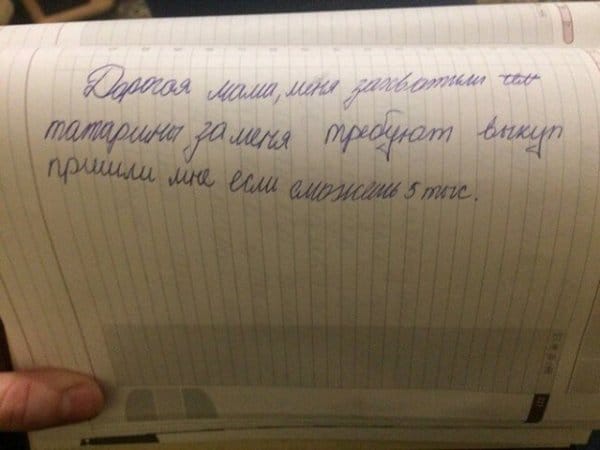 Дорогая мама, меня захватили
татарины за меня требуют выкуп
пришли мне если сможешь 5 тыс.